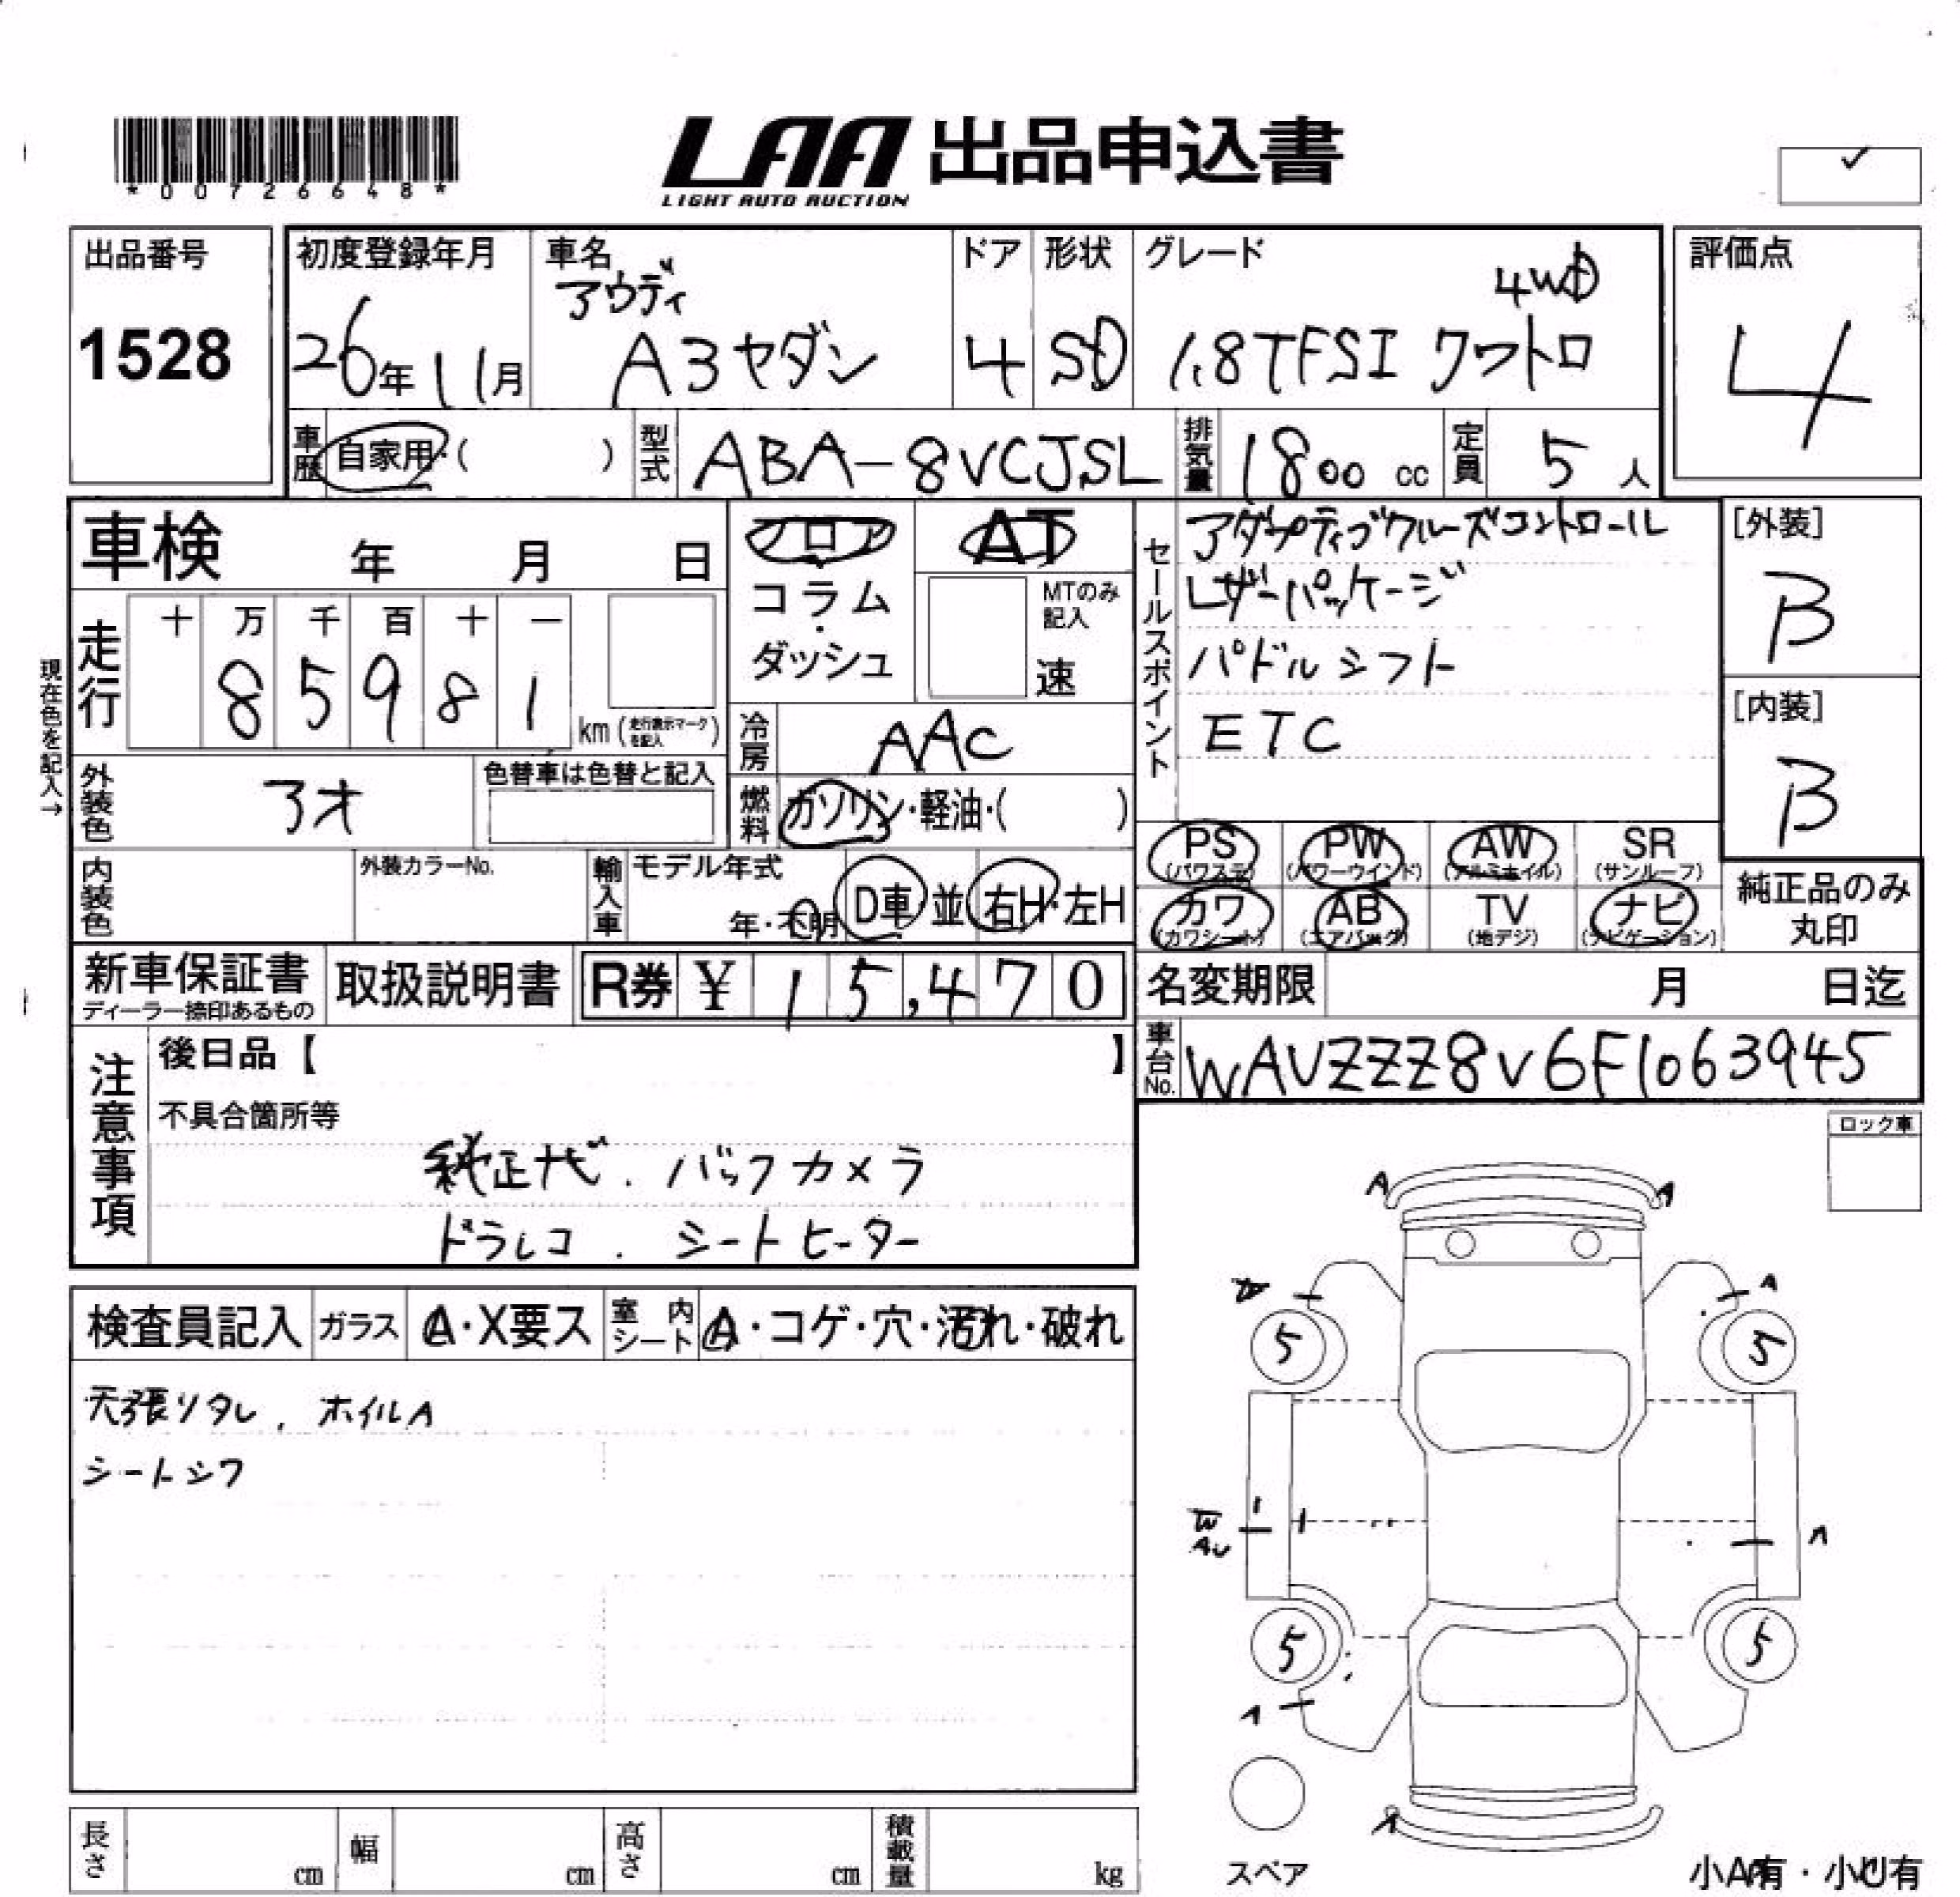 *00726648*
LAA 出品申込書
LIGHT AUTO AUCTION
✓
出品番号
1528
初度登録年月
26年11月
車名
アウディ
A3セダン
ドア
4
形状
SD
グレード
4WD
1.8TFSI クワトロ
評価点
4
車歴 自家用・( )
型式 ABA-8VCJSL
排気量 1800 cc
定員 5 人
車検 年 月 日
フロア
コラム
・
ダッシュ
AT
MTのみ記入
速
セールスポイント
アダプティブクルーズコントロール
レザーパッケージ
パドルシフト
ETC
[外装]
B
[内装]
B
現在色を記入→
走行
十 万 千 百 十 一
8 5 9 8 1
km (走行表示マークを記入)
冷房 AAC
外装色 アオ
色替車は色替と記入
燃料 ガソリン・軽油・( )
PS (パワステ)
PW (パワーウインド)
AW (アルミホイル)
SR (サンルーフ)
カワ (カワシート)
AB (エアバッグ)
TV (地デジ)
ナビ (ナビゲーション)
純正品のみ
丸印
内装色
外装カラーNo.
輸入車
モデル年式
年・不明
D車・並
右H・左H
新車保証書
ディーラー捺印あるもの
取扱説明書
R券 ¥ 15,470
名変期限 月 日迄
車台No. WAUZZZ8V6F1063945
注意事項
後日品【 】
不具合箇所等
純正ナビ . バックカメラ
ドラレコ . シートヒーター
ロック車
検査員記入
ガラス A・X要ス
室内シート A・コゲ・穴・汚れ・破れ
天張リタレ, ホイルA
シートシワ
A
A
A
5
5
W
AU
A
5
5
A
A
スペア
長さ cm
幅 cm
高さ cm
積載量 kg
小A有・小U有